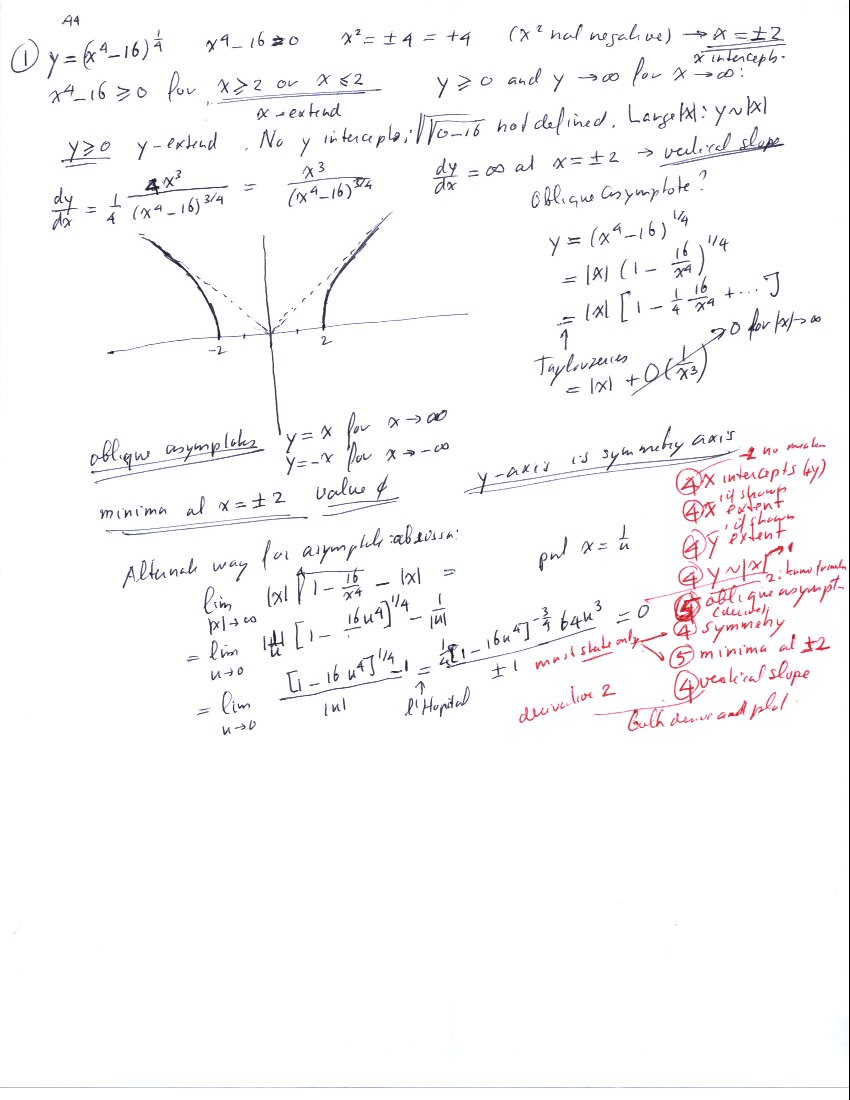 A4
① y = (x⁴-16)^{1/4} x⁴-16 ≥ 0 x² = ±4 = +4 (x² not negative) → x = ±2
x intercepts.
x⁴-16 ≥ 0 for x ≥ 2 or x ≤ 2 y ≥ 0 and y → ∞ for x → ∞:
x-extend
y ≥ 0 y-extend. No y intercepts, √√0-16 not defined. Large |x|: y ~ |x|
dy/dx = 1/4 4x³/(x⁴-16)^{3/4} = x³/(x⁴-16)^{3/4} dy/dx = ∞ at x = ±2 → vertical slope
Oblique asymptote?
y = (x⁴-16)^{1/4}
= |x| (1 - 16/x⁴)^{1/4}
= |x| [1 - 1/4 16/x⁴ + ...]
↑
Taylorseries
= |x| + O(1/x³) → 0 for |x| → ∞
-2 2
oblique asymptotes y = x for x → ∞
y = -x for x → -∞
y-axis is symmetry axis
minima at x = ±2 value ϕ
Alternate way for asymptote
put x = 1/u
lim |x|→∞ |x| √1 - 16/x⁴ - |x| =
= lim u→0 [1 - 16u⁴]^{1/4} - 1/|u|
= lim u→0 [1 - 16u⁴]^{1/4} - 1 / |u| = 1/4 [1 - 16u⁴]^{-3/4} 64u³ / ±1 = 0
↑
l'Hopital
-2 no
④ x intercepts (y)
if shown
④ x extent
if shown
④ y extent
④ y ~ |x|
⑤ oblique asympt.
(derive)
④ symmetry
⑤ minima at ±2
④ vertical slope
must state only
derivative 2
both derive and plot.